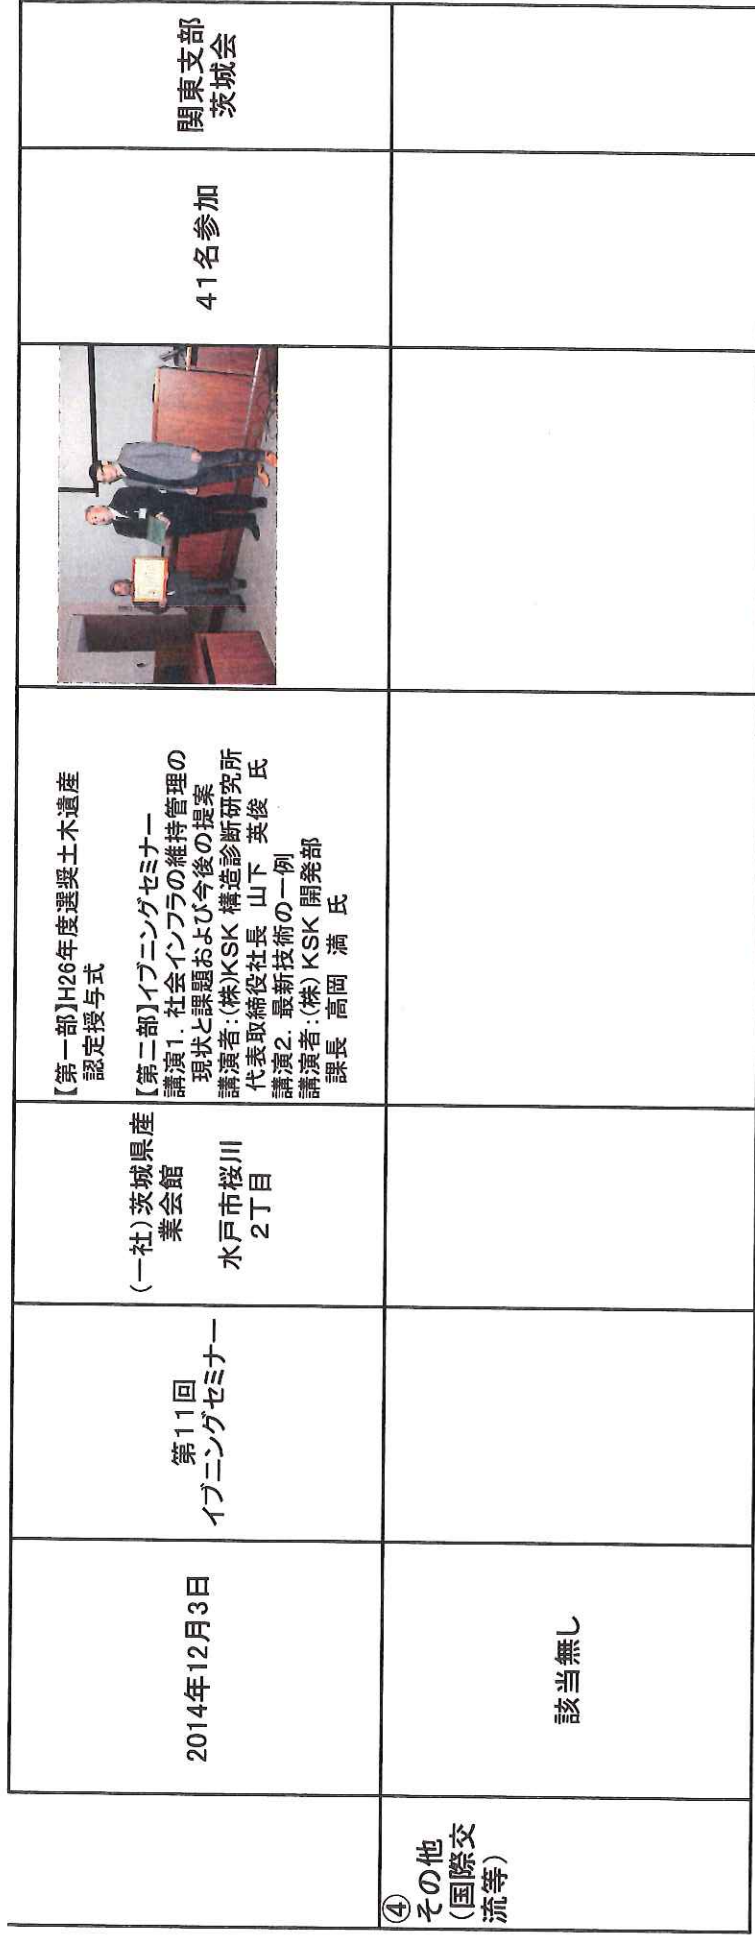 2014年12月3日
第11回
イブニングセミナー
(一社)茨城県産
業会館
水戸市桜川
2丁目
【第一部】H26年度選奨土木遺産
認定授与式
【第二部】イブニングセミナー
講演1. 社会インフラの維持管理の
現状と課題および今後の提案
講演者:(株)KSK 構造診断研究所
代表取締役社長 山下 英俊 氏
講演2. 最新技術の一例
講演者:(株) KSK 開発部
課長 高岡 満 氏
41名参加
関東支部
茨城会
④
その他
(国際交
流等)
該当無し